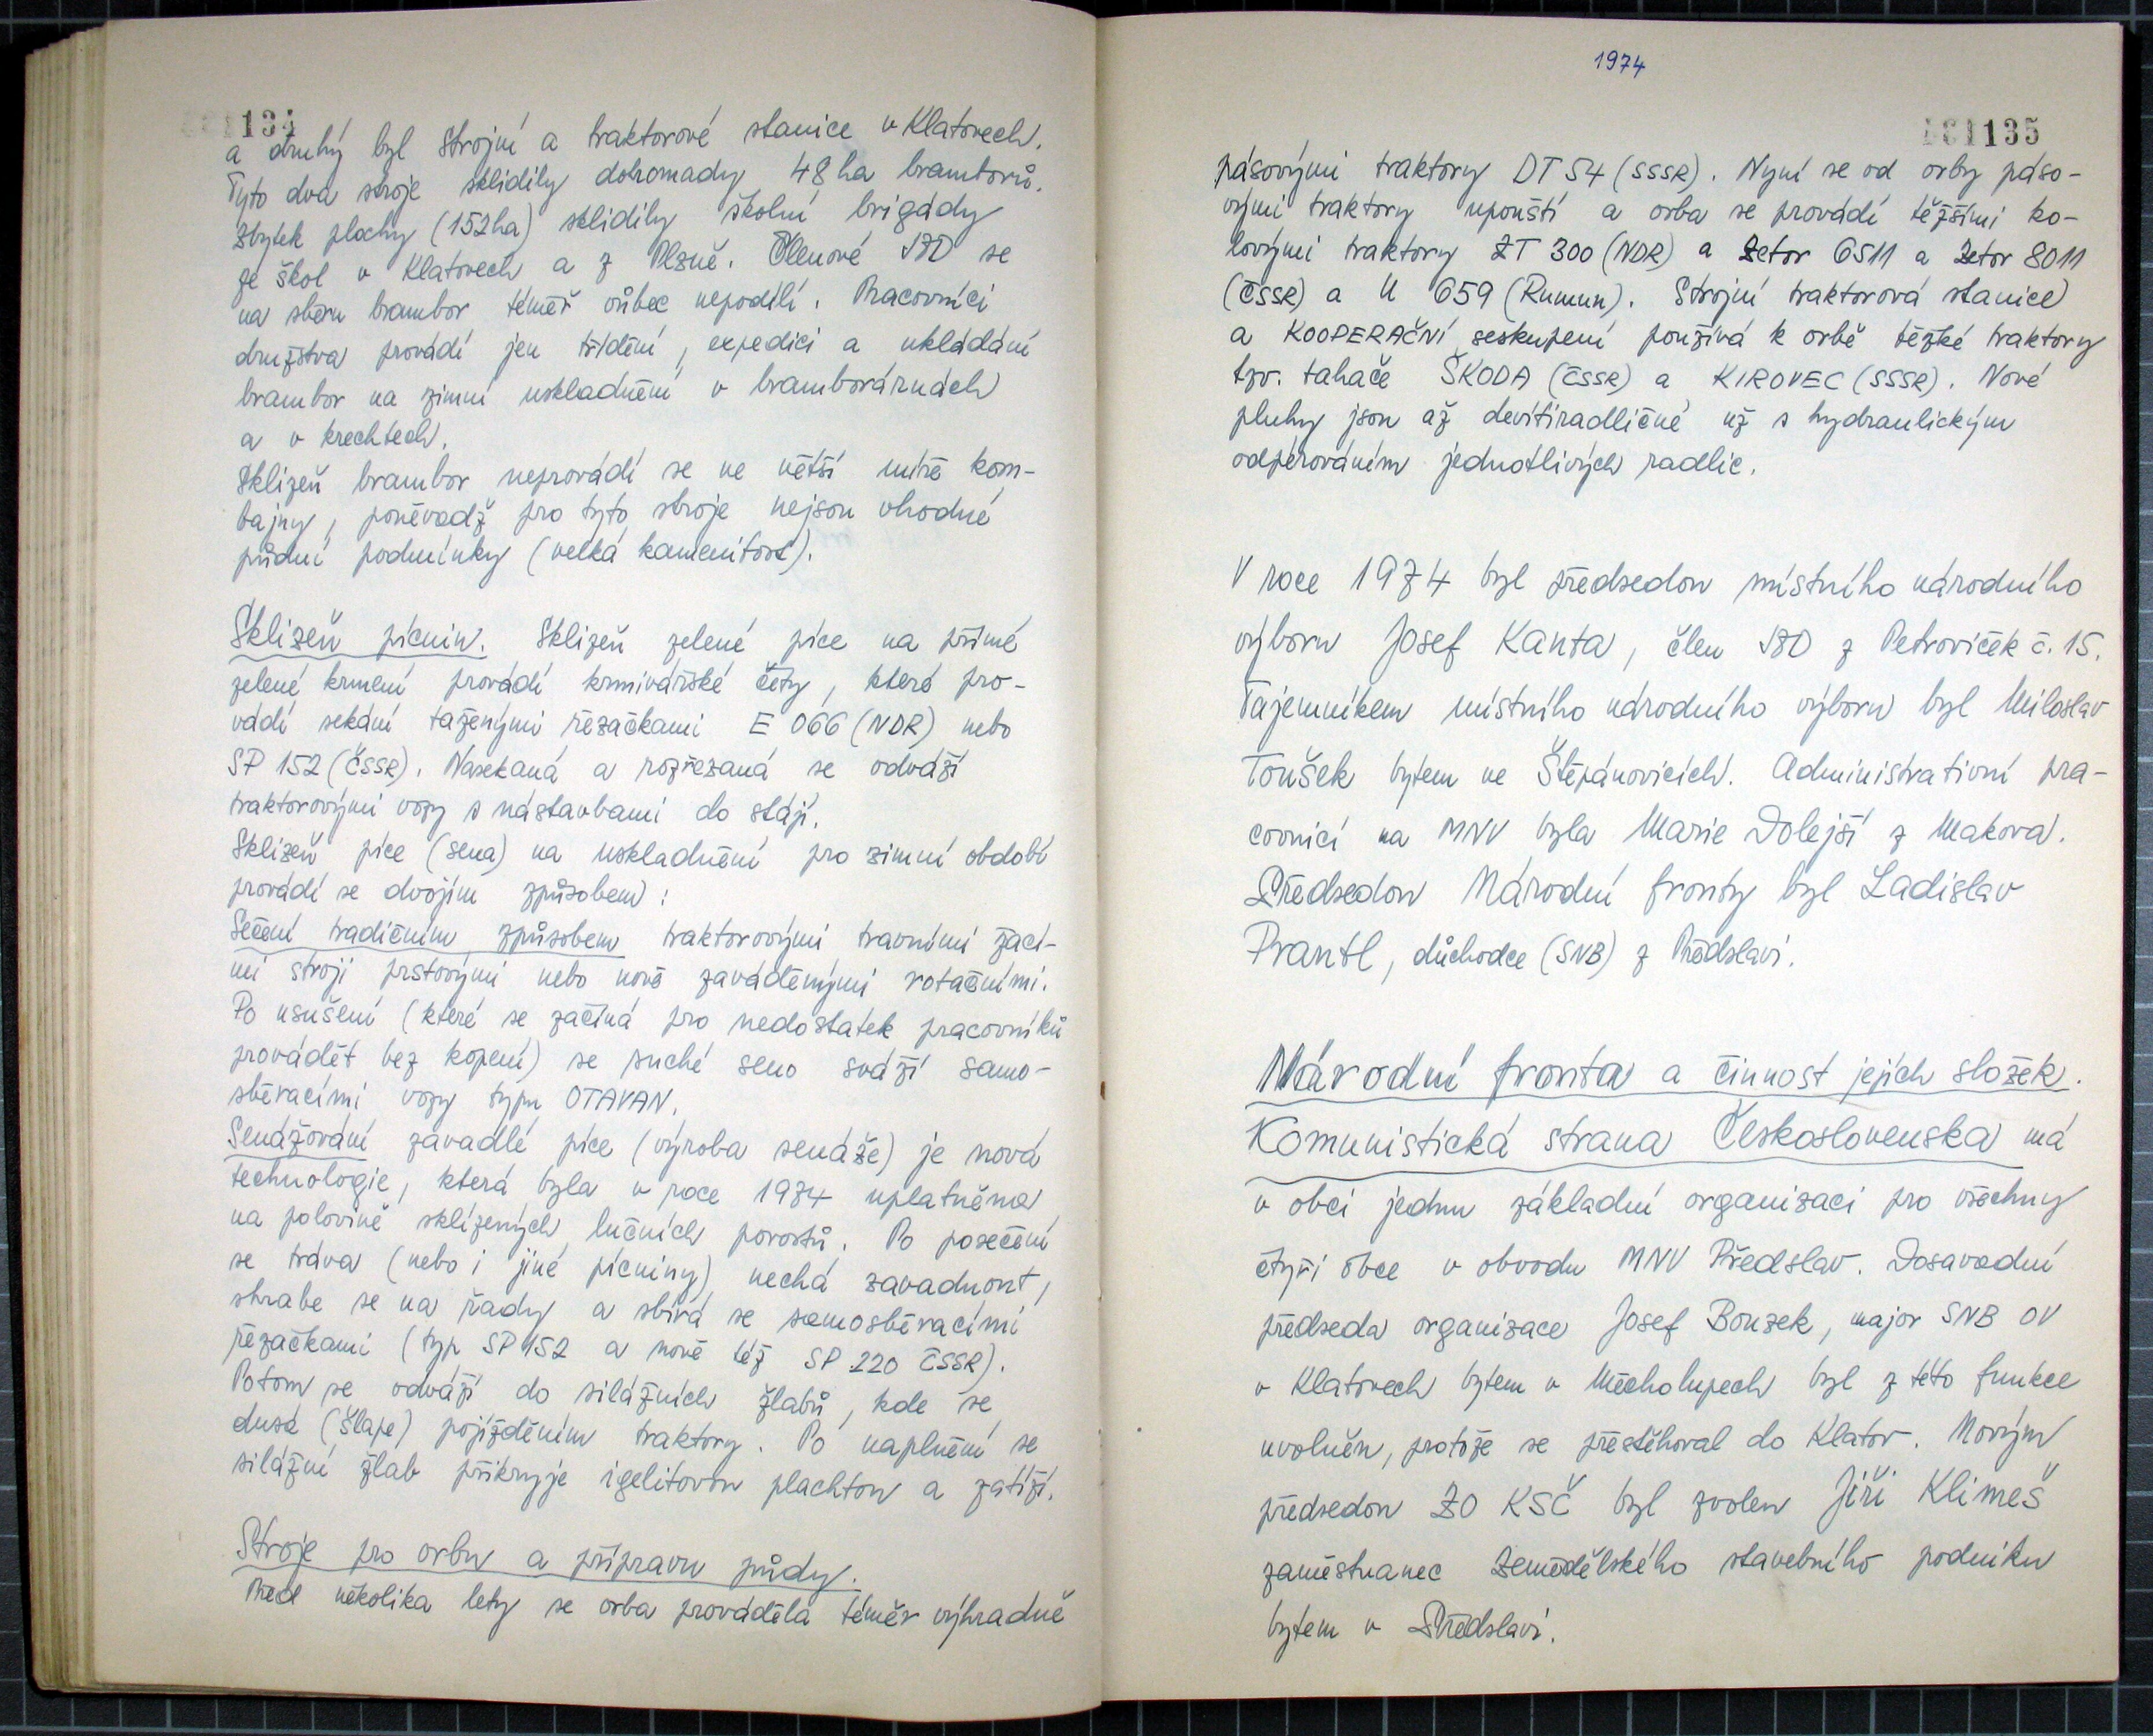 134
a druhý byl Strojní a traktorové stanice v Klatovech.
Tyto dva stroje sklidily dohromady 48 ha bramborů.
Zbytek plochy (152ha) sklidily školní brigády
ze škol v Klatovech a z Plzně. Členové JZD se
na sběru brambor téměř vůbec nepodílí. Pracovníci
družstva provádí jen třídění, expedici a ukládání
brambor na zimní uskladnění v bramborárnách
a v krechtech.
Sklizeň brambor neprovádí se ve větší míře kom-
bajny, poněvadž pro tyto stroje nejsou vhodné
půdní podmínky (velká kamenitost).
Sklizeň pícnin. Sklizeň zelené píce na přímé
zelené krmení provádí krmivářské čety, které pro-
vádí sekání taženými řezačkami E 066 (NDR) nebo
SP 152 (ČSSR). Nasekaná a rozřezaná se odváží
traktorovými vozy s nástavbami do stájí.
Sklizeň píce (sena) na uskladnění pro zimní období
provádí se dvojím způsobem:
Sečení tradičním způsobem traktorovými travními žací-
mi stroji prstovými nebo nově zaváděnými rotačními.
Po usušení (které se začíná pro nedostatek pracovníků
provádět bez kopení) se suché seno sváží samo-
sběracími vozy typu OTAVAN.
Senážování zavadlé píce (výroba senáže) je nová
technologie, která byla v roce 1974 uplatněna
na polovině sklízených lučních porostů. Po posečení
se tráva (nebo i jiné pícniny) nechá zavadnout,
shrabe se na řady a sbírá se samosběracími
řezačkami (typ SP 152 a nově též SP 220 ČSSR).
Potom se odváží do silážních žlabů, kde se
dusá (šlape) pojížděním traktory. Po naplnění se
silážní žlab přikryje igelitovou plachtou a zatíží.
Stroje pro orbu a přípravu půdy.
Před několika lety se orba prováděla téměř výhradně
1974
135
pásovými traktory DT 54 (SSSR). Nyní se od orby páso-
vými traktory upouští a orba se provádí těžšími ko-
lovými traktory ZT 300 (NDR) a Zetor 6511 a Zetor 8011
(ČSSR) a U 659 (Rumun). Strojní traktorová stanice
a KOOPERAČNÍ seskupení používá k orbě těžké traktory
tzv. tahače ŠKODA (ČSSR) a KIROVEC (SSSR). Nové
pluhy jsou až devítiradličné už s hydraulickým
odpérováním jednotlivých radlic.
V roce 1974 byl předsedou místního národního
výboru Josef Kanta, člen JZD z Petroviček č. 15.
Tajemníkem místního národního výboru byl Miloslav
Toušek bytem ve Štěpánovicích. Administrativní pra-
covnicí na MNV byla Marie Dolejší z Makova.
Předsedou Národní fronty byl Ladislav
Prantl, důchodce (SNB) z Předslavi.
Národní fronta a činnost jejích složek.
Komunistická strana Československa má
v obci jednu základní organizaci pro všechny
čtyři obce v obvodu MNV Předslav. Dosavadní
předseda organizace Josef Bouzek, major SNB OV
v Klatovech bytem v Měcholupech byl z této funkce
uvolněn, protože se přestěhoval do Klatov. Novým
předsedou ZO KSČ byl zvolen Jiří Klimeš
zaměstnanec Zemědělského stavebního podniku
bytem v Předslavi.